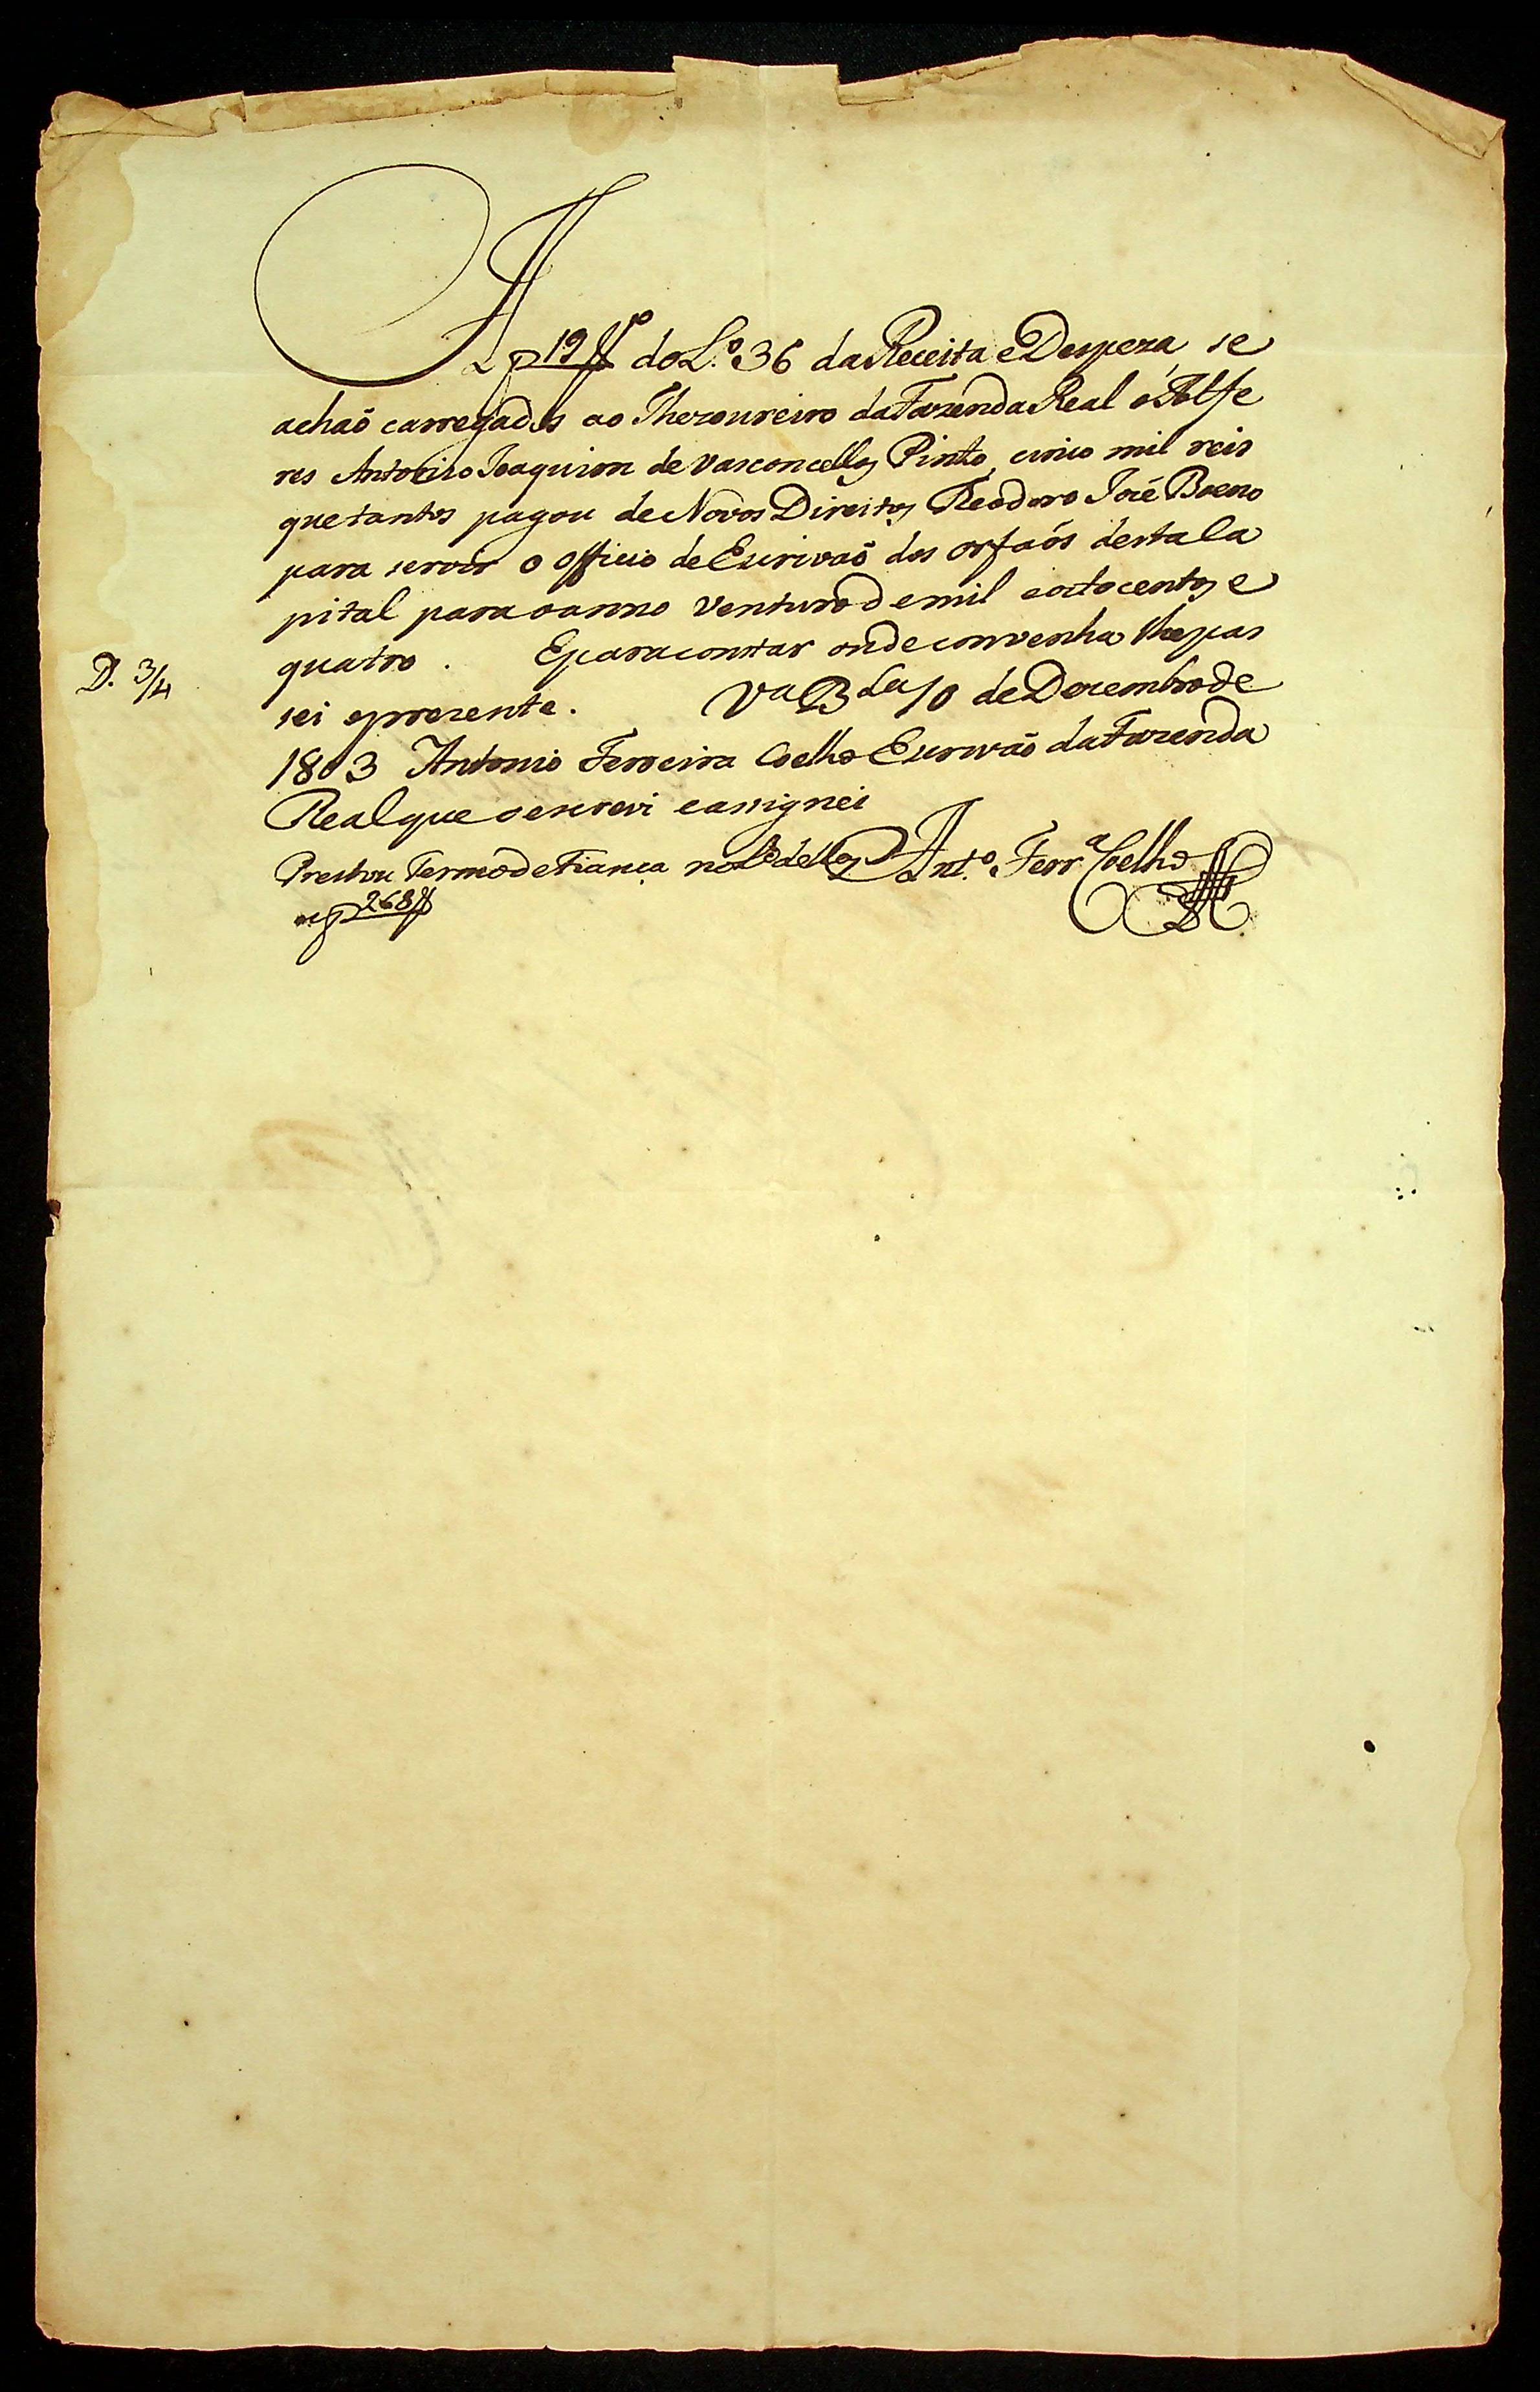 A f 19 do L.º 36 da Receita e Despeza se
achaõ carregados ao Thezoureiro da Fazenda Real o Alfe
res Antonio Joaquim de Vasconcellos Pinto cinco mil reis
que tantos pagou de Novos Direitos Theodoro José Boeno
para servir o officio de Escrivaõ dos orfaõs desta Ca
pital para o anno venturo de mil e octocentos e
quatro. E para constar onde convenha lhe pas
D. 3/4
sei o prezente. Vª Bª 10 de Dezembro de
1803 Antonio Ferreira Coelho Escrivão da Fazenda
Real que o escrevi e assignei
Prestou Termo de Fiança no Lº dellas Antº Ferrª Coelho
a f 268